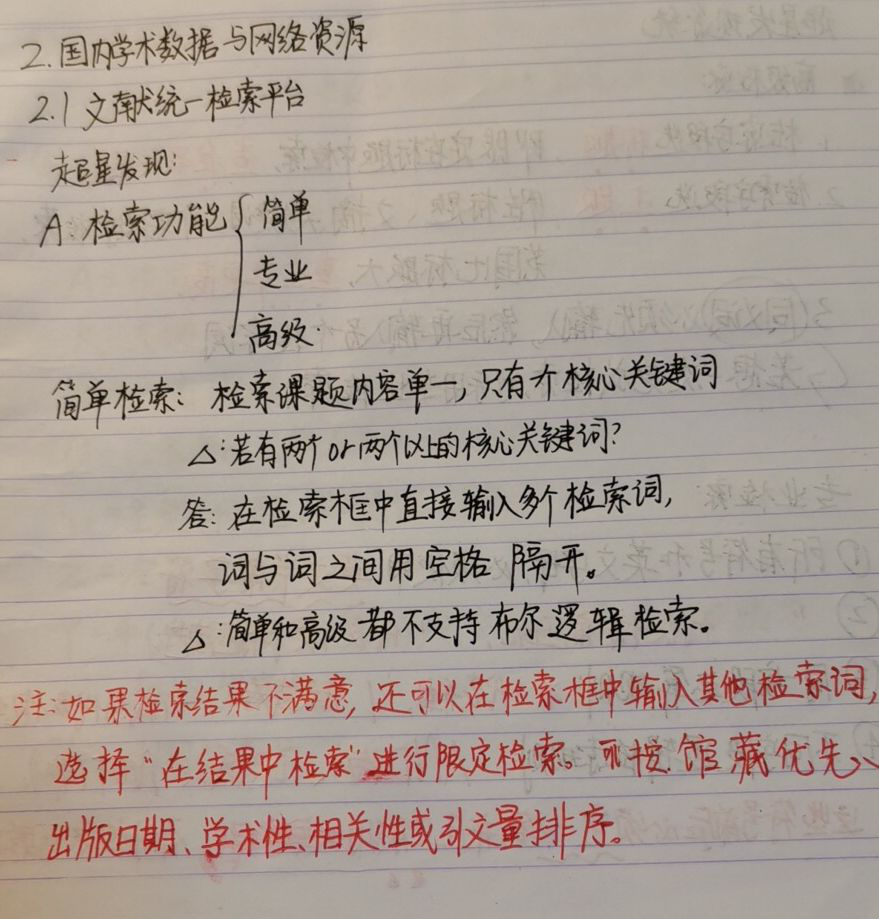 2.国内学术数据与网络资源
2.1 文献统一检索平台
超星发现:
A.检索功能{简单
专业
高级.
简单检索: 检索课题内容单一,只有个核心关键词
△:若有两个or两个以上的核心关键词?
答:在检索框中直接输入多个检索词,
词与词之间用空格 隔开。
△:简单和高级都不支持布尔逻辑检索。
注:如果检索结果不满意,还可以在检索框中输入其他检索词,
选择“在结果中检索”进行限定检索。可按馆藏优先、
出版日期、学术性、相关性或引文量排序。